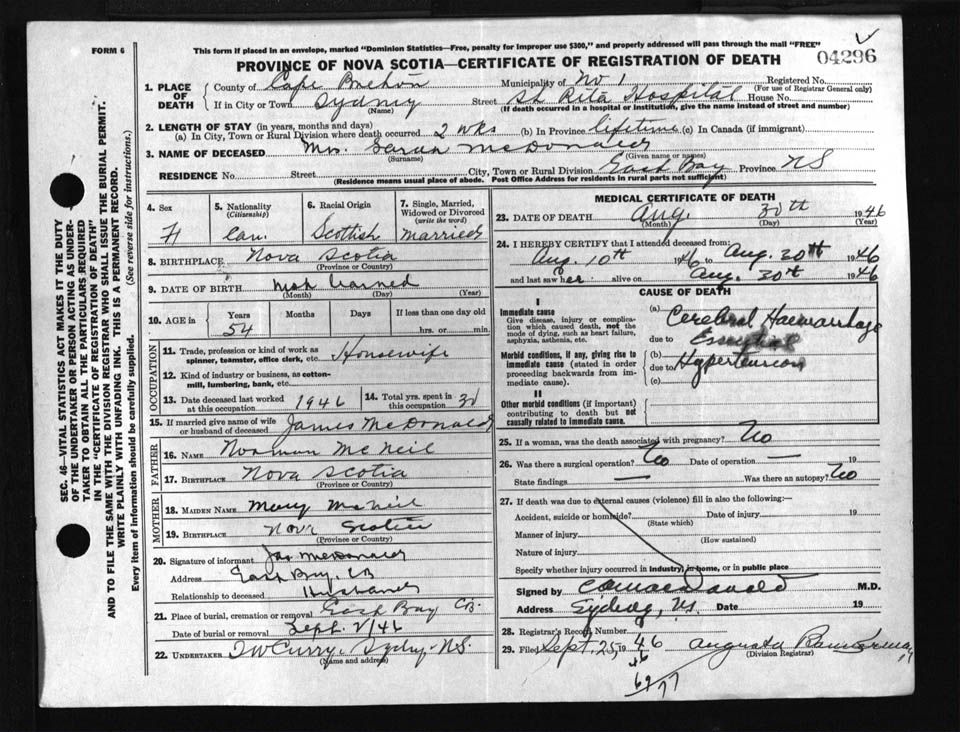 FORM 6
This form if placed in an envelope, marked "Dominion Statistics—Free, penalty for improper use $300," and properly addressed will pass through the mail "FREE"
04296
PROVINCE OF NOVA SCOTIA—CERTIFICATE OF REGISTRATION OF DEATH
1. PLACE OF DEATH
County of Cape Breton Municipality of No 1 Registered No.
(For use of Registrar General only)
If in City or Town Sydney Street St Rita Hospital House No.
(Name) (If death occurred in a hospital or institution, give the name instead of street and number)
2. LENGTH OF STAY (in years, months and days)
(a) In City, Town or Rural Division where death occurred 2 wks (b) In Province lifetime (c) In Canada (if immigrant)
3. NAME OF DECEASED Mrs. Sarah McDonald
(Surname) (Given name or names)
RESIDENCE No. Street City, Town or Rural Division East Bay Province NS
(Residence means usual place of abode. Post Office Address for residents in rural parts not sufficient)
4. Sex F
5. Nationality (Citizenship) Can.
6. Racial Origin Scottish
7. Single, Married, Widowed or Divorced (write the word) Married
8. BIRTHPLACE Nova Scotia
(Province or Country)
9. DATE OF BIRTH Not learned
(Month) (Day) (Year)
10. AGE in Years Months Days If less than one day old
54 hrs. or min.
OCCUPATION
11. Trade, profession or kind of work as spinner, teamster, office clerk, etc. Housewife
12. Kind of industry or business, as cotton-mill, lumbering, bank, etc.
13. Date deceased last worked at this occupation 1946 14. Total yrs. spent in this occupation 30
15. If married give name of wife or husband of deceased James McDonald
FATHER
16. NAME Norman McNeil
17. BIRTHPLACE Nova Scotia
(Province or Country)
MOTHER
18. MAIDEN NAME Mary McNeil
19. BIRTHPLACE Nova Scotia
(Province or Country)
20. Signature of informant Jas McDonald
Address East Bay, CB
Relationship to deceased Husband
21. Place of burial, cremation or removal East Bay CB.
Date of burial or removal Sept. 2/46
22. UNDERTAKER T W Curry. Sydney. N.S.
(Name and address)
MEDICAL CERTIFICATE OF DEATH
23. DATE OF DEATH Aug. 30th 1946
(Month) (Day) (Year)
24. I HEREBY CERTIFY that I attended deceased from:
Aug. 10th 1946 to Aug. 30th 1946
and last saw her alive on Aug. 30th 1946
CAUSE OF DEATH
I
Immediate cause
Give disease, injury or complication which caused death, not the mode of dying, such as heart failure, asphyxia, asthenia, etc.
Morbid conditions, if any, giving rise to immediate cause (stated in order proceeding backwards from immediate cause).
II
Other morbid conditions (if important) contributing to death but not causally related to immediate cause.
(a) Cerebral Haemorrhage
due to Essential
(b) Hypertension
due to
(c)
25. If a woman, was the death associated with pregnancy? No
26. Was there a surgical operation? No Date of operation — 19
State findings — Was there an autopsy? No
27. If death was due to external causes (violence) fill in also the following:—
Accident, suicide or homicide? Date of injury 19
(State which)
Manner of injury
(How sustained)
Nature of injury
Specify whether injury occurred in industry, in home, or in public place
Signed by M.D.
Address Sydney, N.S. Date 19
28. Registrar's Record Number
29. Filed Sept. 25, 1946 Augusta
(Division Registrar)
46
SEC. 46—VITAL STATISTICS ACT MAKES IT THE DUTY
OF THE UNDERTAKER OR PERSON ACTING AS UNDER-
TAKER TO OBTAIN ALL THE PARTICULARS REQUIRED
IN THE "CERTIFICATE OF REGISTRATION OF DEATH"
AND TO FILE THE SAME WITH THE DIVISION REGISTRAR WHO SHALL ISSUE THE BURIAL PERMIT.
WRITE PLAINLY WITH UNFADING INK. THIS IS A PERMANENT RECORD.
Every item of information should be carefully supplied. (See reverse side for instructions.)